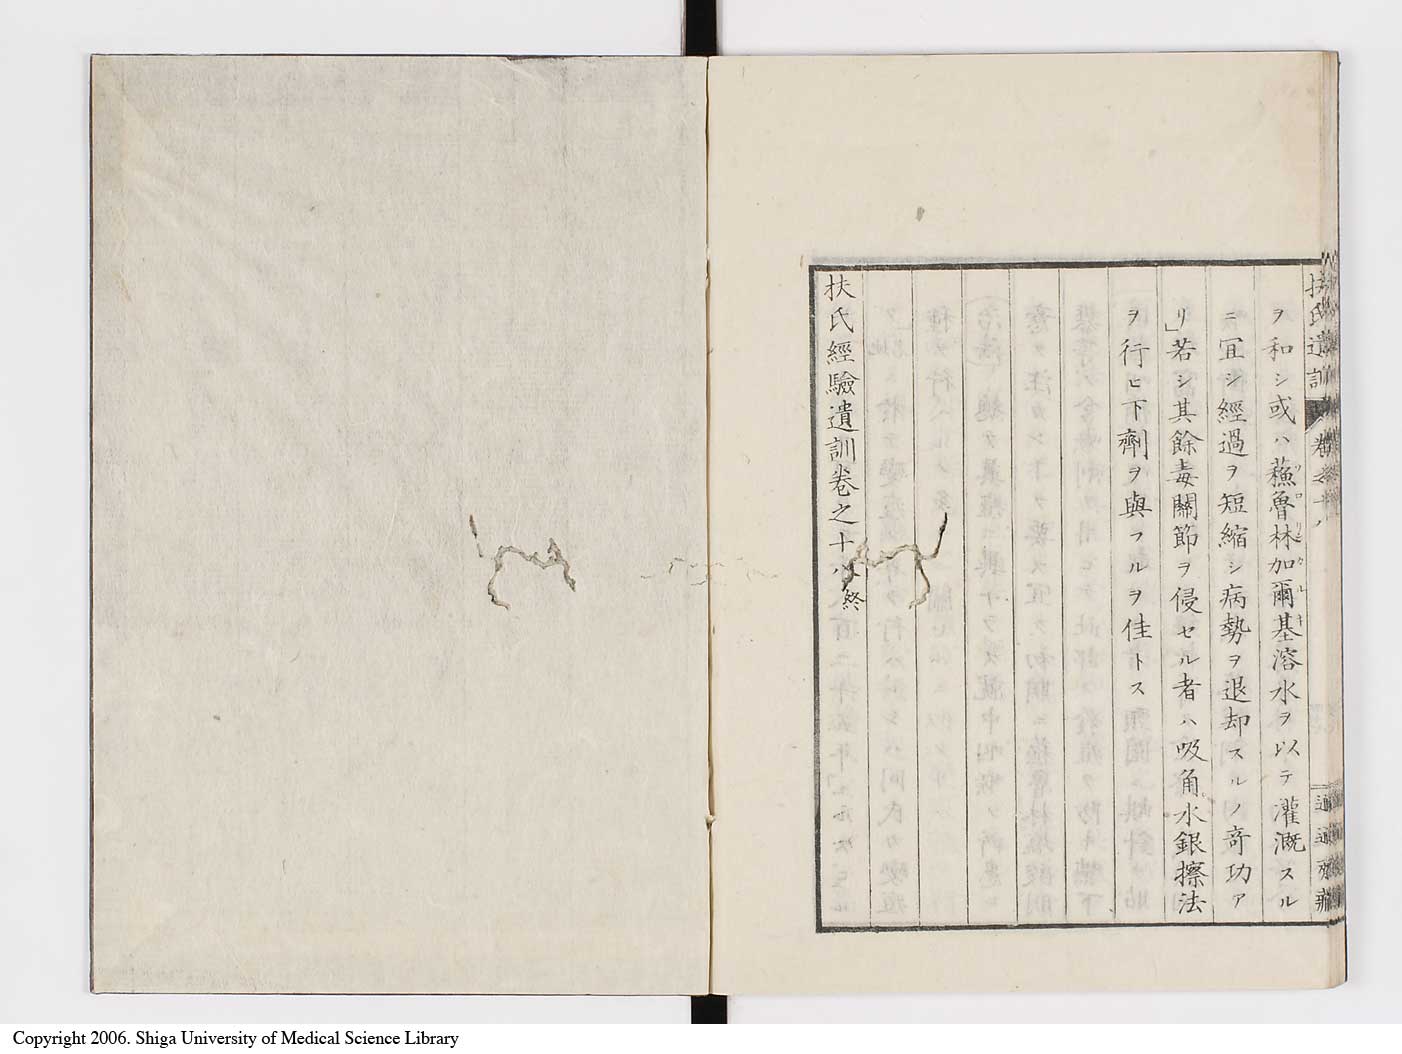 扶氏遺訓 卷之十八
ヲ和シ或ハ蘓魯林加爾基溶水ヲ以テ灌漑スル
ニ冝シ經過ヲ短縮シ病勢ヲ退却スルノ竒功ア
リ」若シ其餘毒關節ヲ侵セル者ハ吸角水銀擦法
ヲ行ヒ下劑ヲ與フルヲ佳トス
扶氏經驗遺訓卷之十八終
Copyright 2006. Shiga University of Medical Science Library